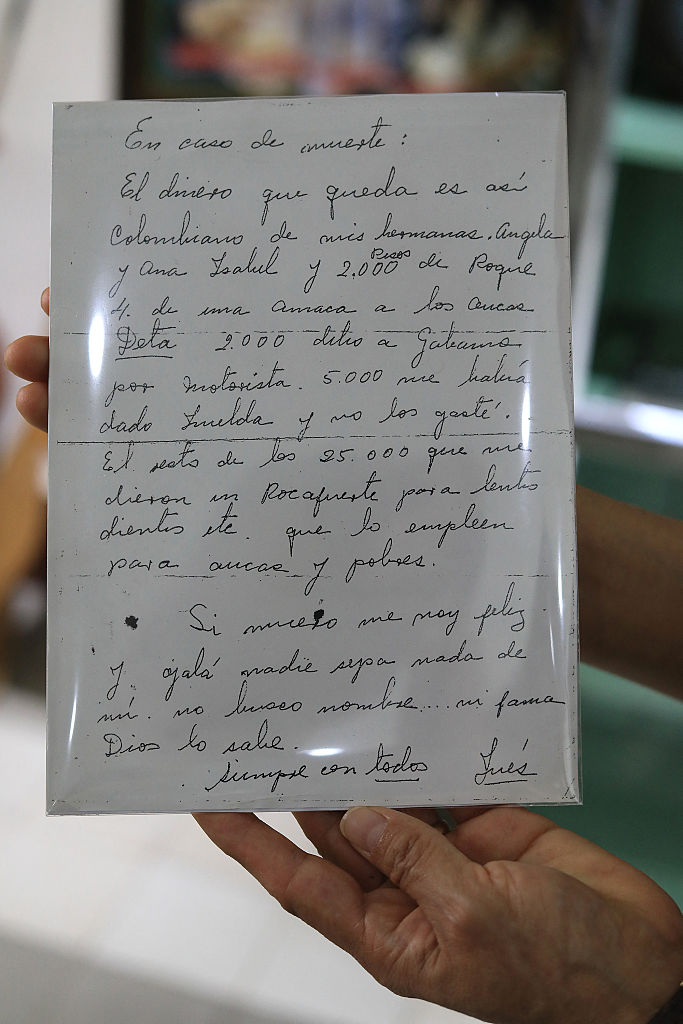 En caso de muerte:
El dinero que queda es así
Colombiano de mis hermanas. Angela
y Ana Isabel y 2.000 Pesos de Roque
4. de una amaca a los aucas
Deta 2.000 debo a Gabamo
por Motorista. 5.000 me había
dado Imelda y no los gasté.
El resto de los 25.000 que me
dieron en Rocafuerte para lentes
dientes etc. que lo empleen
para aucas y pobres.
Si muero me voy feliz
y ojalá nadie sepa nada de
mí. no busco nombre... ni fama
Dios lo sabe.
Siempre con todos Inés